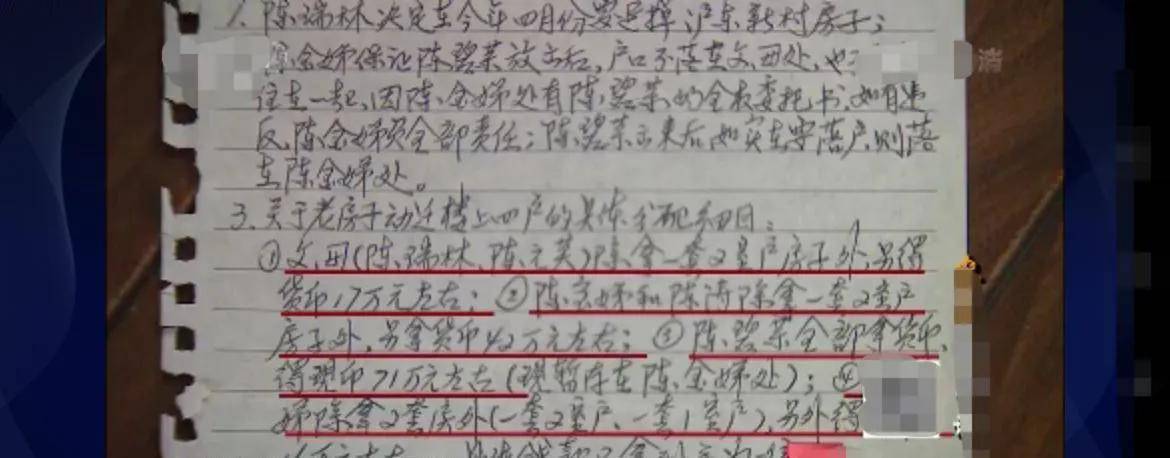 1. 陈瑞林决定在今年四月份要迁掉沪东新村房子；
陈金娣保证陈碧莱放出后，户口不落在文田处，也
住在一起，因陈金娣处有陈碧莱的全权委托书，如有违
反，陈金娣负全部责任；陈碧莱出来后如实在要落户，则落
在陈金娣处。
3. 关于老房子动迁楼上四户的具体分配和田日：
①文田(陈瑞林、陈元英)除拿一套2室户房子外，另得
货币17万元左右；②陈金娣和陈涛除拿一套2室户
房子外，另拿货币42万元左右；③陈碧莱全部拿货币，
得现币71万元左右(现暂存在陈金娣处)；④
娣除拿2套房外(一套2室户、一套1室户)，另外得
万元左右